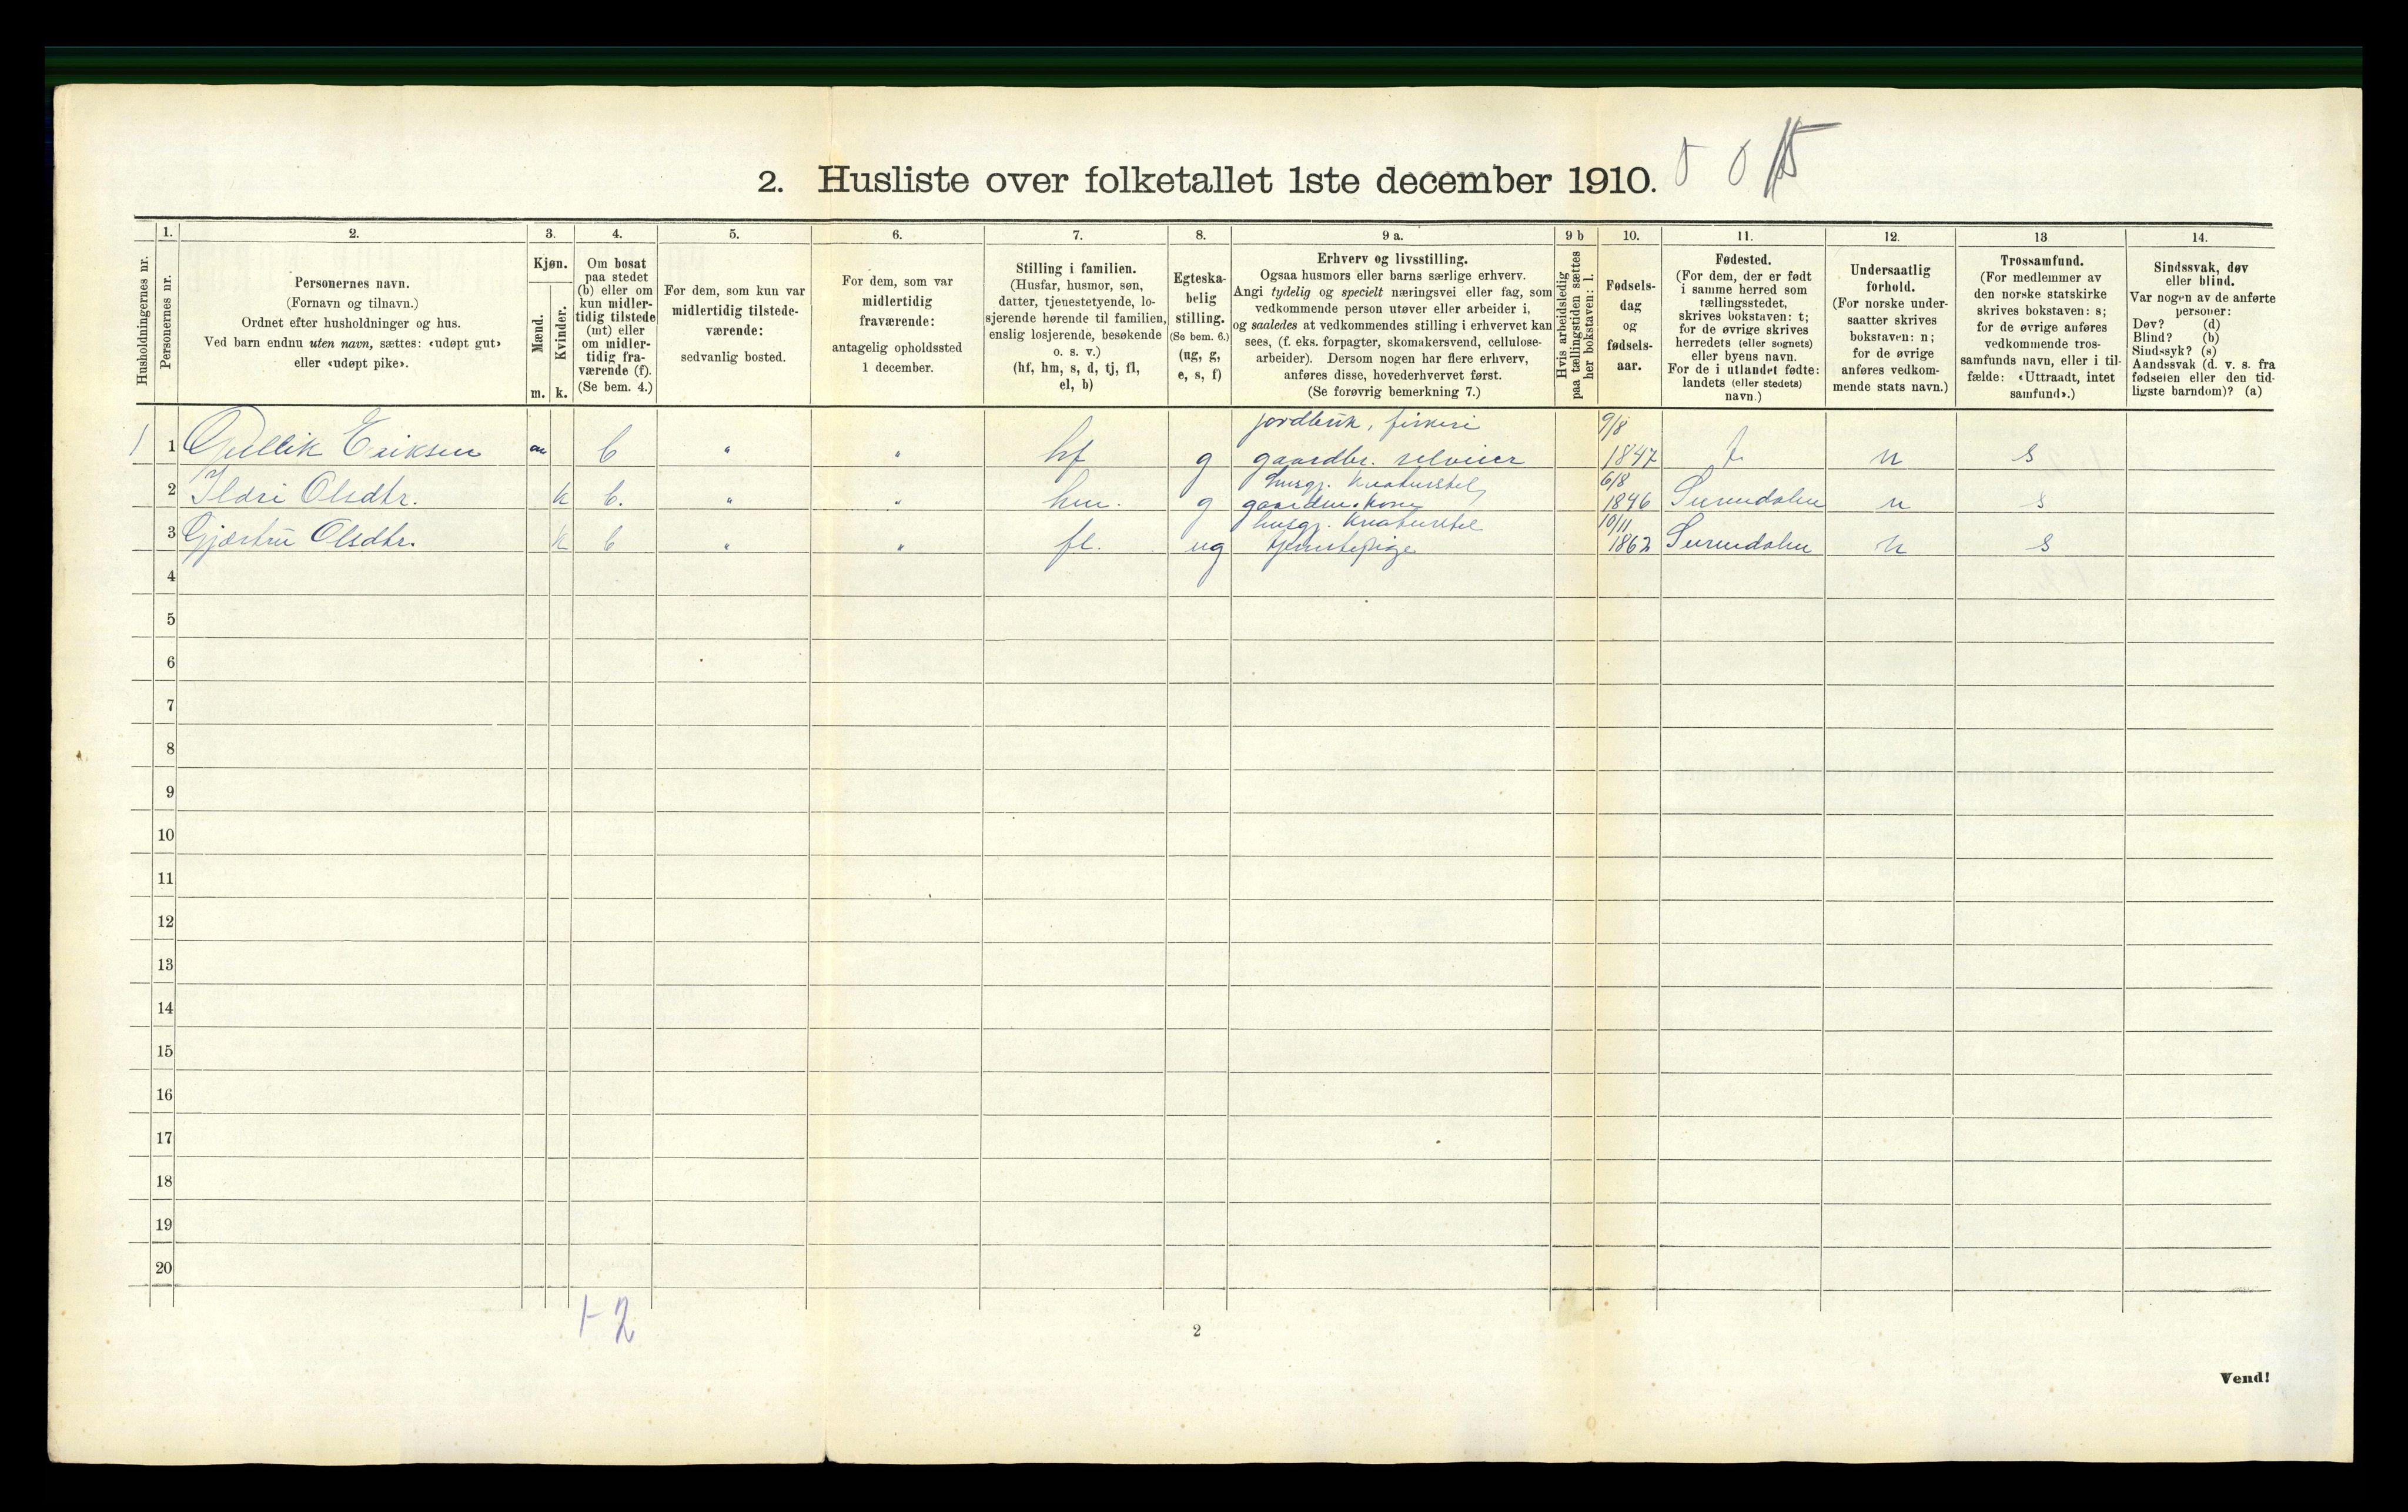 2. Husliste over folketallet 1ste december 1910.
Husholdningernes nr.
1.
Personernes nr.
2.
Personernes navn.
(Fornavn og tilnavn.)
Ordnet efter husholdninger og hus.
Ved barn endnu uten navn, sættes: «udøpt gut»
eller «udøpt pike».
3.
Kjøn.
Mænd.
Kvinder.
m. k.
4.
Om bosat
paa stedet
(b) eller om
kun midler-
tidig tilstede
(mt) eller
om midler-
tidig fra-
værende (f).
(Se bem. 4.)
5.
For dem, som kun var
midlertidig tilstede-
værende:
sedvanlig bosted.
6.
For dem, som var
midlertidig
fraværende:
antagelig opholdssted
1 december.
7.
Stilling i familien.
(Husfar, husmor, søn,
datter, tjenestetyende, lo-
sjerende hørende til familien,
enslig losjerende, besøkende
o. s. v.)
(hf, hm, s, d, tj, fl,
el, b)
8.
Egteska-
belig
stilling.
(Se bem. 6.)
(ug, g,
e, s, f)
9 a.
Erhverv og livsstilling.
Ogsaa husmors eller barns særlige erhverv.
Angi tydelig og specielt næringsvei eller fag, som
vedkommende person utøver eller arbeider i,
og saaledes at vedkommendes stilling i erhvervet kan
sees, (f. eks. forpagter, skomakersvend, cellulose-
arbeider). Dersom nogen har flere erhverv,
anføres disse, hovederhvervet først.
(Se forøvrig bemerkning 7.)
9 b
Hvis arbeidsledig
paa tællingstiden sættes
her bokstaven: l.
10.
Fødsels-
dag
og
fødsels-
aar.
11.
Fødested.
(For dem, der er født
i samme herred som
tællingsstedet,
skrives bokstaven: t;
for de øvrige skrives
herredets (eller sognets)
eller byens navn.
For de i utlandet fødte:
landets (eller stedets)
navn.)
12.
Undersaatlig
forhold.
(For norske under-
saatter skrives
bokstaven: n;
for de øvrige
anføres vedkom-
mende stats navn.)
13
Trossamfund.
(For medlemmer av
den norske statskirke
skrives bokstaven: s;
for de øvrige anføres
vedkommende tros-
samfunds navn, eller i til-
fælde: «Uttraadt, intet
samfund».)
14.
Sindssvak, døv
eller blind.
Var nogen av de anførte
personer:
Døv? (d)
Blind? (b)
Sindssyk? (s)
Aandssvak (d. v. s. fra
fødselen eller den tid-
ligste barndom)? (a)
jordbruk, fiskeri 9/8
1 1 Gullik Eriksen m b " " hf g gaardbr. selveier 1847 t. n s
6/8
2 Ildri Olsdtr. k b. " " hm. g gaardm. kone 1846 Surendalen n s
10/11
3 Gjærtru Olsdtr. k b " " fl. ug tjenstepige 1862 Surendalen n s
4
5
6
7
8
9
10
11
12
13
14
15
16
17
18
19
20
1-2
2
Vend!